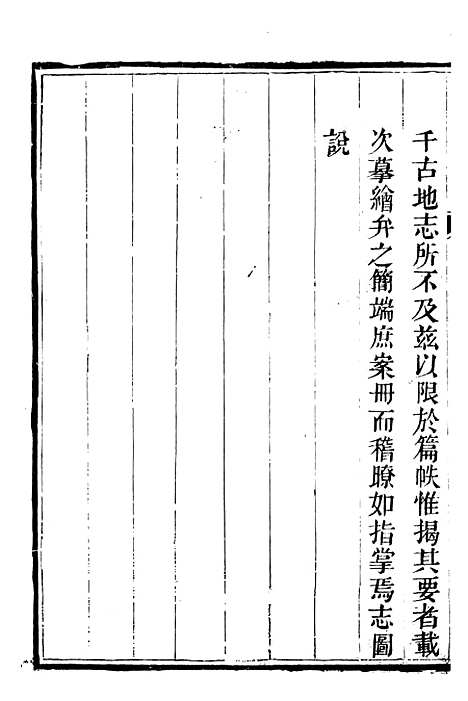 千古地志所不及茲以限於篇帙惟揭其要者載
次摹繪弁之簡端庶案冊而稽瞭如指掌焉志圖
說